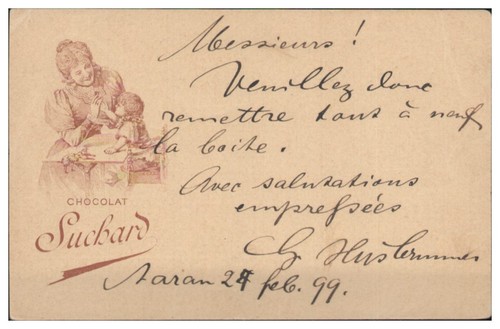 Messieurs !
Veuillez donc
remettre tout à neuf
la boite.
Avec salutations
empressées
Aarau 27 feb. 99.
CHOCOLAT
Suchard